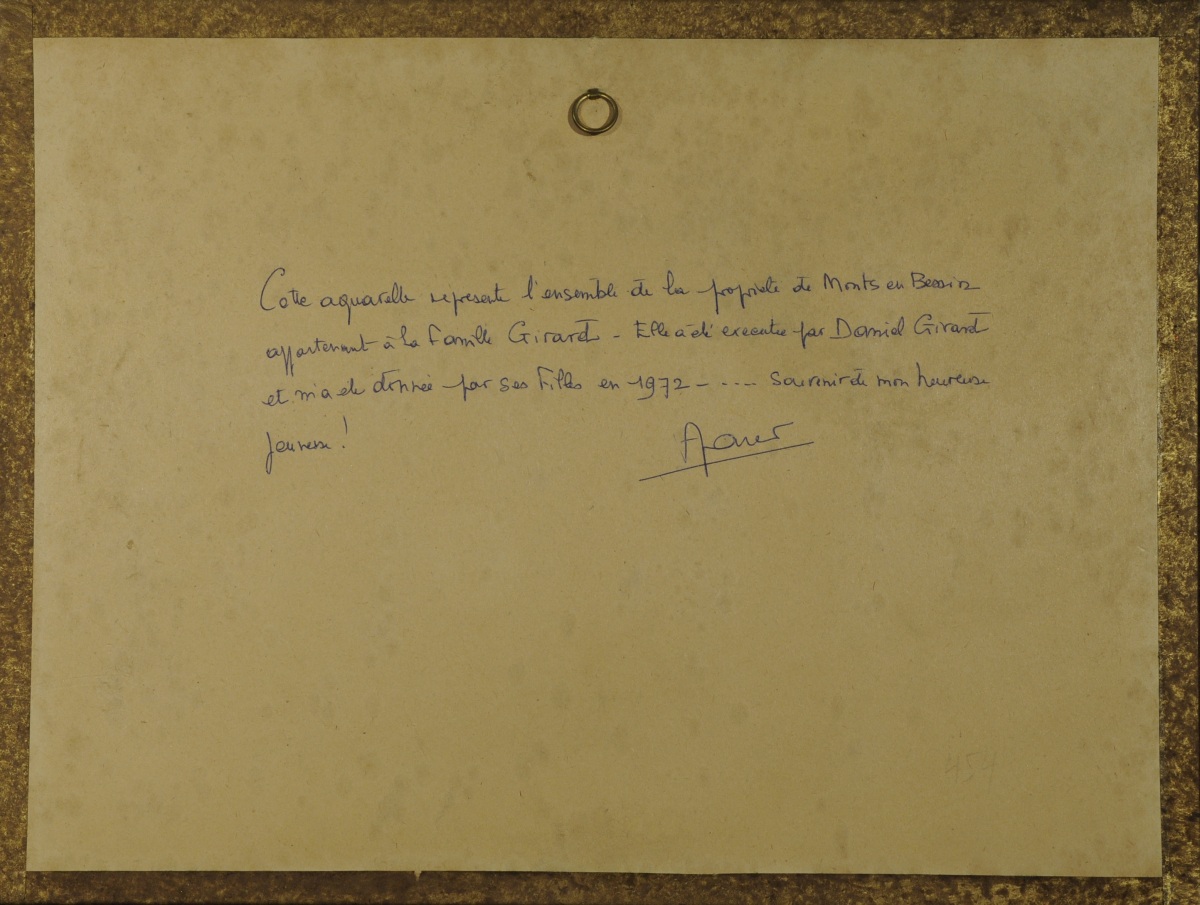 Cette aquarelle représente l'ensemble de la propriété de Monts en Bessin
appartenant à la Famille Girard - Elle a été executée par Daniel Girard
et m'a été donnée par ses Filles en 1972 - .... Souvenir de mon heureuse
jeunesse !